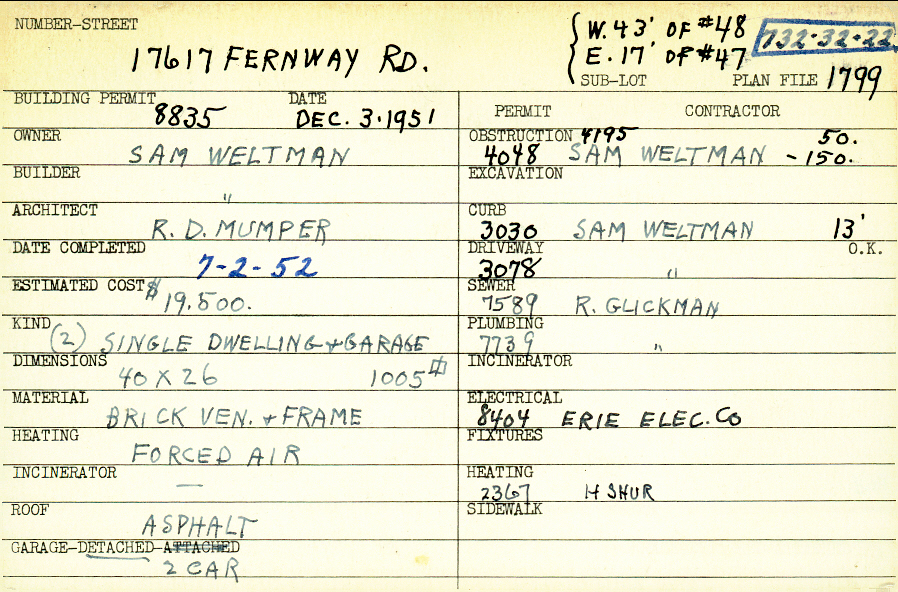 NUMBER-STREET
17617 FERNWAY RD.
W. 43' OF #48
E. 17' OF #47
732-32-22
SUB-LOT PLAN FILE 1799
BUILDING PERMIT 8835 DATE DEC. 3. 1951
OWNER
SAM WELTMAN
BUILDER
"
ARCHITECT
R. D. MUMPER
DATE COMPLETED
7-2-52
ESTIMATED COST $
19,500.
KIND
(2) SINGLE DWELLING + GARAGE
DIMENSIONS
40 X 26 1005 #
MATERIAL
BRICK VEN. + FRAME
HEATING
FORCED AIR
INCINERATOR
—
ROOF
ASPHALT
GARAGE-DETACHED-ATTACHED
2 CAR
PERMIT CONTRACTOR
OBSTRUCTION 4195 50.
4048 SAM WELTMAN - 150.
EXCAVATION
CURB
3030 SAM WELTMAN 13'
DRIVEWAY O.K.
3078 "
SEWER
7589 R. GLICKMAN
PLUMBING
7739 "
INCINERATOR
ELECTRICAL
8404 ERIE ELEC. CO
FIXTURES
HEATING
2367 H SHUR
SIDEWALK